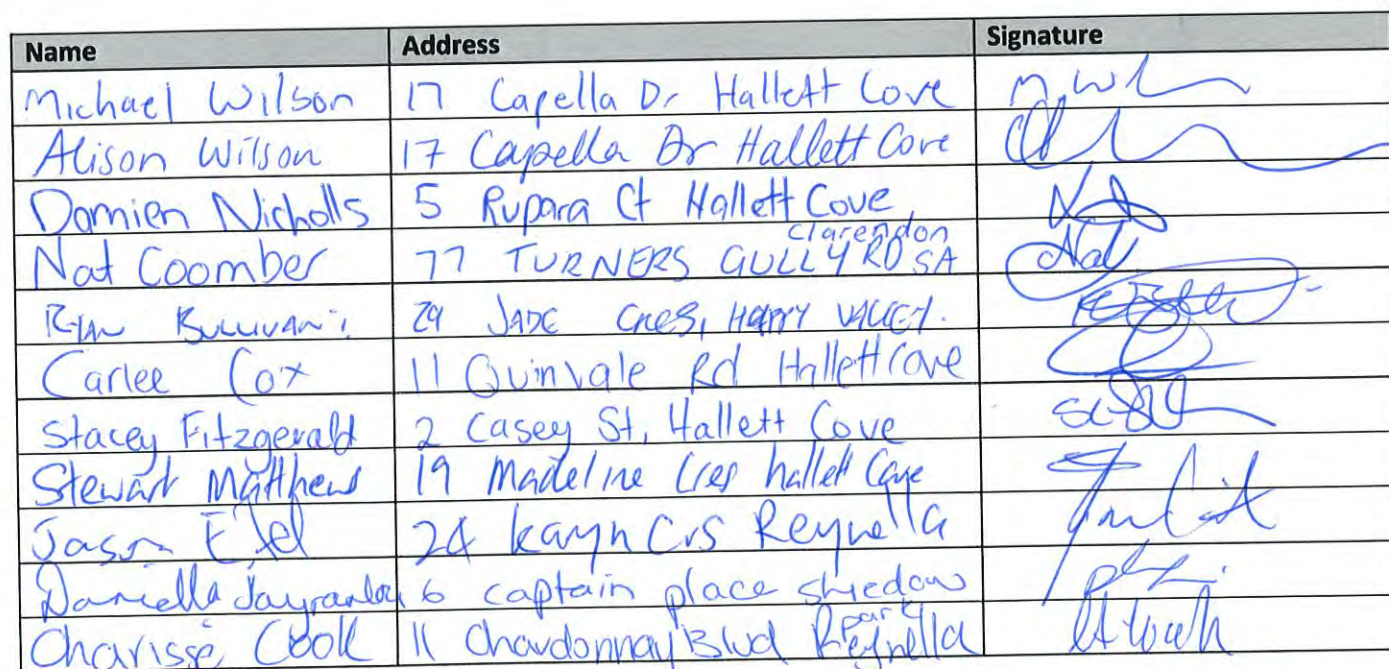 Name Address Signature
Michael Wilson 17 Capella Dr Hallett Cove M.W
Alison Wilson 17 Capella Dr Hallett Cove
Damien Nicholls 5 Rupara Ct Hallett Cove
Nat Coomber 77 TURNERS GULLY RD SA Clarendon Nat
29 JADE CRES, HAPPY VALLEY.
Carlee Cox 11 Quinvale Rd Hallett Cove
Stacey Fitzgerald 2 Casey St, Hallett Cove
Stewart Matthews 19 Madeline Cres hallett Cove
Jason 24 Karyn Crs Reynella
Daniella 6 captain place shiedow park
Charisse Cook 11 Chardonnay Blvd Reynella